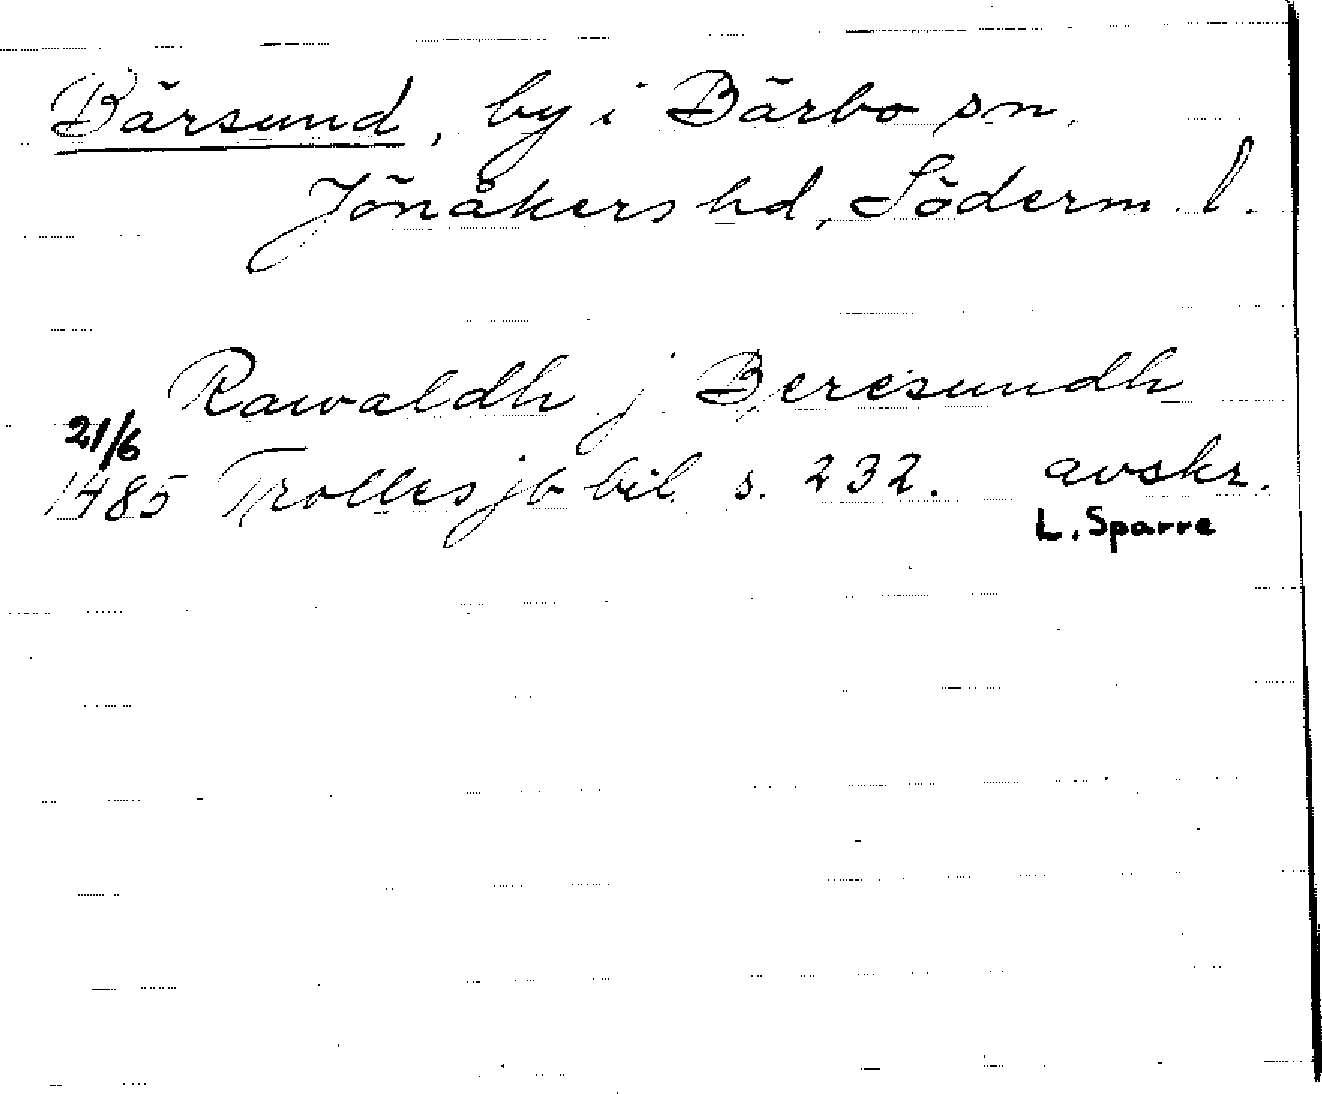 Bärsund, by i Bärbo sn.
Jönåkers hd, Söderm. l.
Rawaldh j Beresundh
21/6
1485 Trolles jb bil s. 232. avskr.
L. Sparre